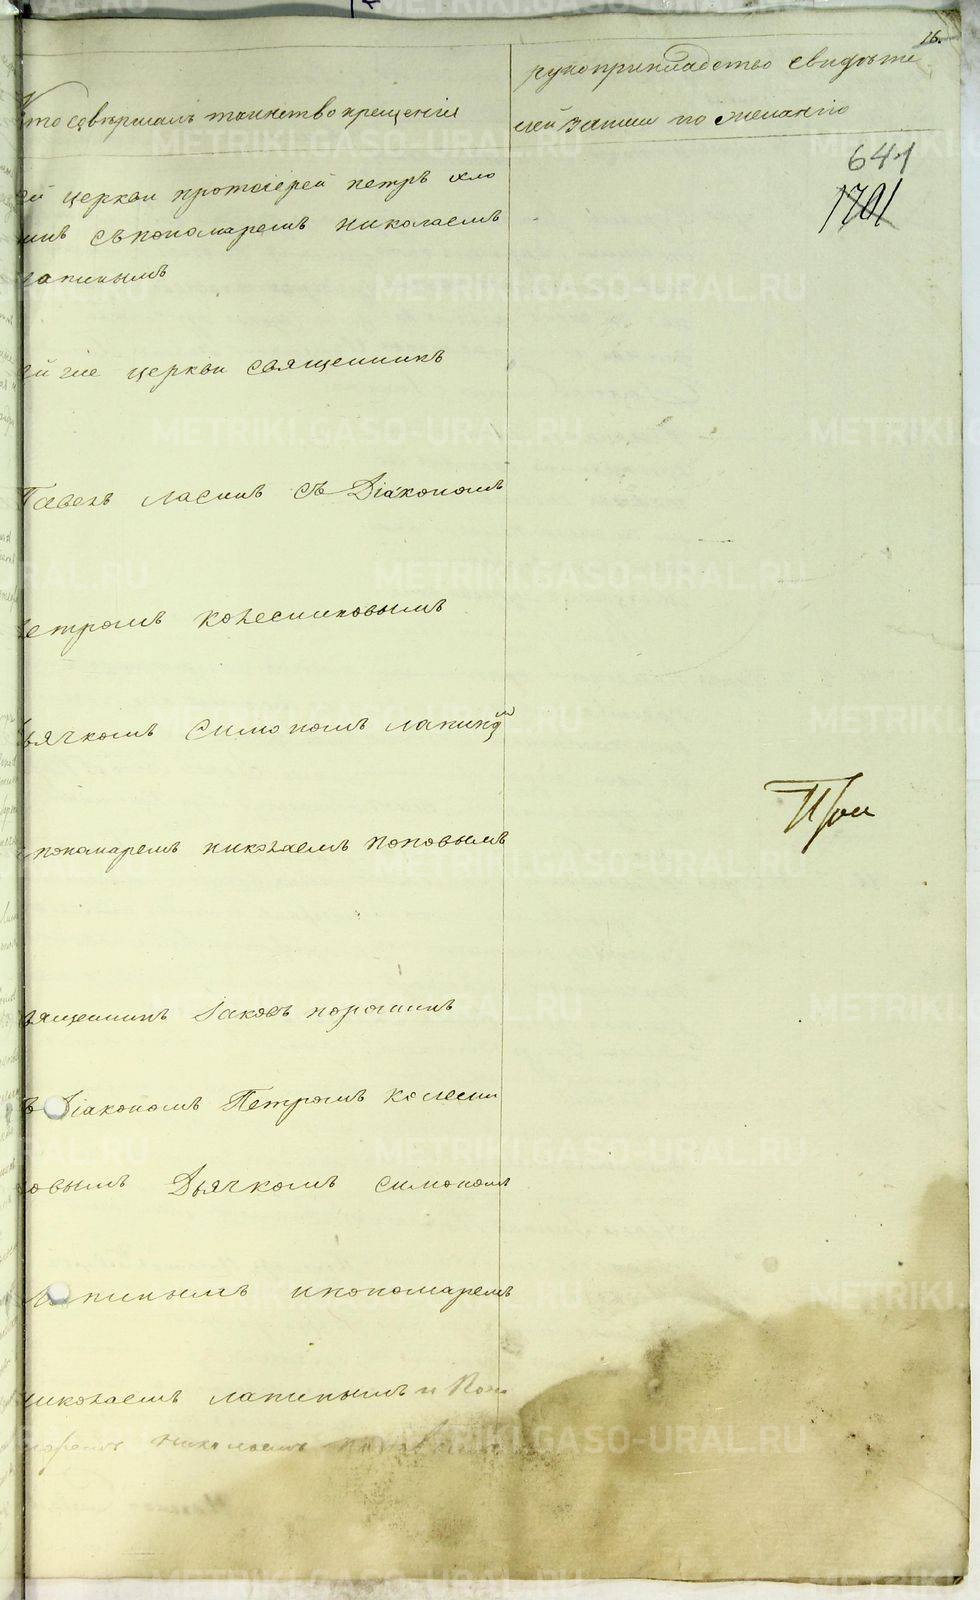 16.
Кто совершалъ таинство крещенія
рукоприкладство свидѣте
лей записи по желанію
641
1701
ой церкви протоіерей петръ хло
инъ съ пономаремъ николаемъ
лапинымъ
ой же церкви священникъ
Павелъ ласинъ съ Діакономъ
петромъ колесниковымъ
дьячкомъ симономъ лапинымъ
пономаремъ николаемъ поповымъ
При
священникъ Іаковъ порошинъ
съ Діакономъ Петромъ колесни
ковымъ Дьячкомъ симономъ
лапинымъ ипономаремъ
николаемъ лапинымъ и Поно
маремъ николаемъ поповымъ
METRIKI.GASO-URAL.RU